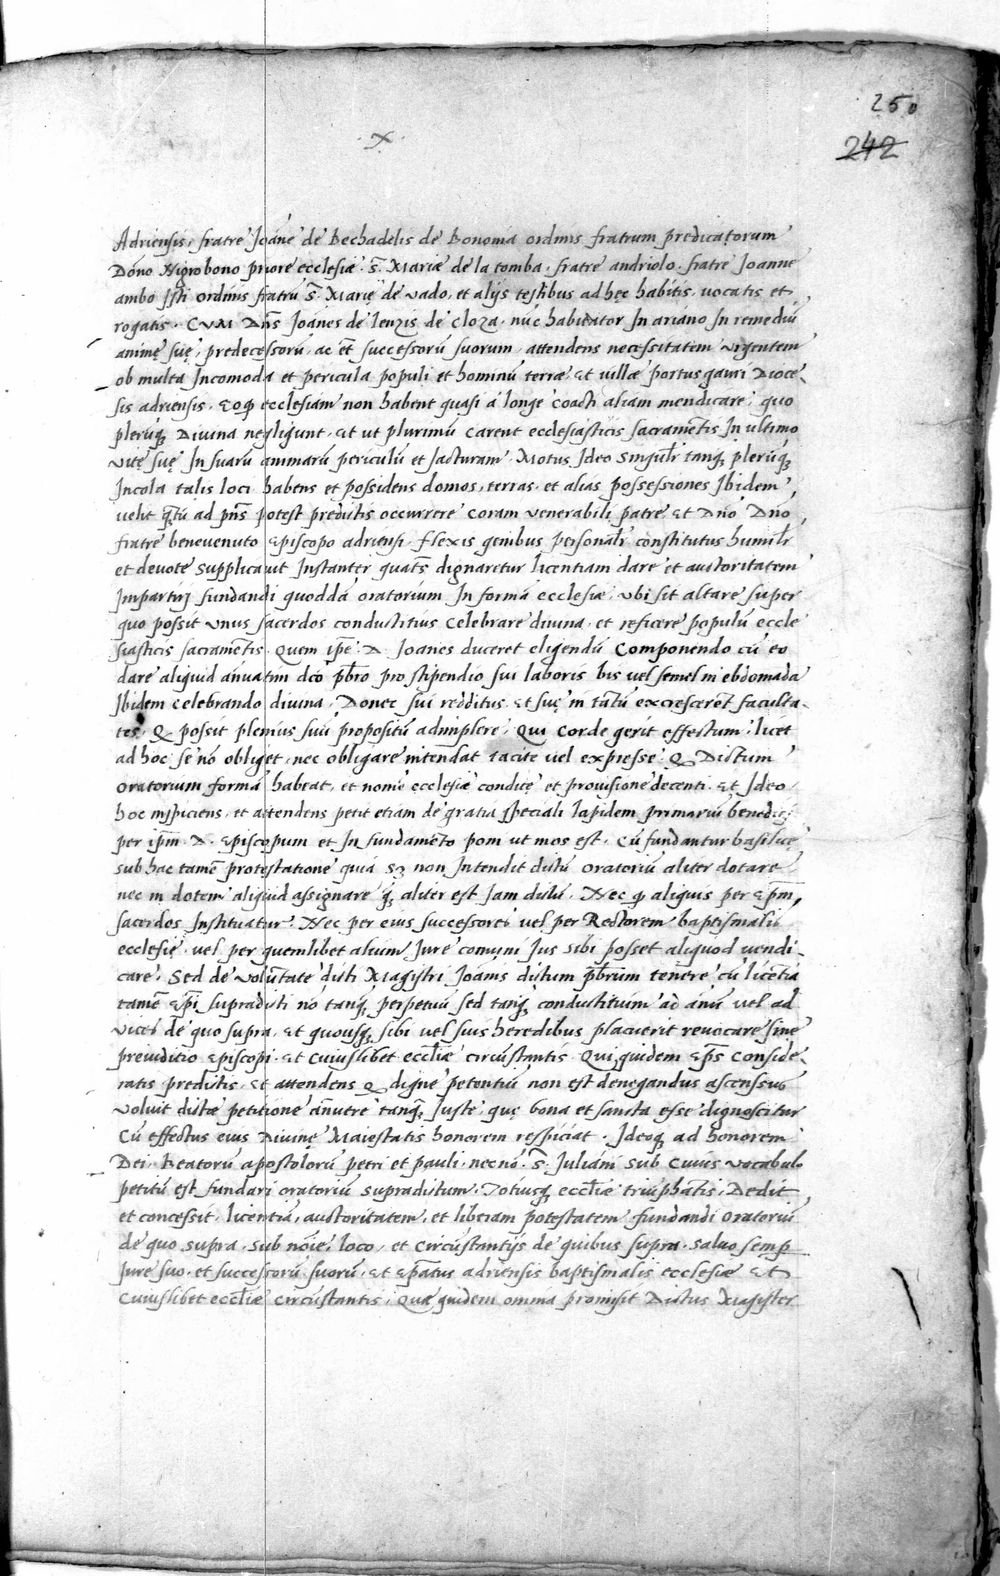 250
242
. X .
Adriensis, fratre Joāne de Bechadelis de Bononia ordinis fratrum predicatorum
Dōno Nigrobono priore ecclesiæ . S̄. Mariæ de la tomba, fratre andriolo. fratre Joanne
ambo Jsti ordinis fratrū S̄. Marię de vado, et alijs testibus ad hec habitis, vocatis et
rogatis. CVM Dn̄s Joānes de lenzis de cloza, nūc habitator In ariano In remediū
animę suę, predecessorū, ac et̄ successorū suorum, attendens necessitatem vrgentem
ob multa Incomoda et pericula populi et hominū terræ, et villæ portus gauri dioce-
sis adriensis, eo q ecclesiam non habent quasi a longe coacti aliam mendicare, quo
plerūq Divina negligunt, et ut plurimū carent ecclesiasticis sacramētis In ultimo
vitę suę In suarū animarū periculū et Jacturam. Motus Jdeo singulr̄ tanq̄ plerūq
Incola talis loci habens et possidens domos, terras, et alias possessiones Jbidem,
velit q̄tū ad pn̄s potest predictis occurrere coram venerabili patre et Dn̄o Dn̄o
fratre benevenuto episcopo adriensi, flexis genibus personalr̄ constitutus humilr̄
et devote supplicauit Instanter quat̄s dignaretur licentiam dare et auctoritatem
Impartirj fundandi quoddā oratorium In forma ecclesiæ, vbi sit altare super
quo possit vnus sacerdos conductitius celebrare divina, et reficere populū eccle
siasticis sacramētis. Quem ip̄e D. Joanes duceret eligendū componendo cū eo
dare aliquid anuatim dc̄o pb̄ro pro stipendio sui laboris bis vel semel in ebdomada
Jbidem celebrando divina, Donec sui redditus, et suę in tātū excrescerēt faculta-
tes, q possit plenius suū propositū adimplere, Qui corde gerit effectum, licet
ad hoc se nō obliget, nec obligare intendat tacite vel expresse q Dictum
oratorium formā habeat, et nomē ecclesiæ condite et provisione decenti. et Jdeo
hoc inspiciens, et attendens petit etiam de gratia speciali lapidem primariū benedici
per ip̄m D. episcopum et In fundamēto poni ut mos est, cū fundantur basilicę
sub hac tamē protestatione quia non Intendit dictū oratoriū aliter dotare
nec in dotem aliquid assignare q̄ aliter est Jam dictū. Nec q aliquis per ep̄m,
sacerdos Instituatur. Nec per eius successores vel per Rectorem baptismalis
ecclesię, vel per quemlibet alium, Jure comuni Jus sibi posset aliquod vendi-
care. Sed de volūtate dicti Magistri Joānis dictum pb̄rum tenere cū licētia
tamē ep̄i supradicti nō tanq̄ perpetuū sed tanq̄ conductitium ad anū vel ad
vices de quo supra, et quousq sibi vel suis heredibus placuerit revocare sine
preiuditio episcopi, et cuiuslibet eccl̄iæ circūstantis. Qui quidem ep̄s conside-
ratis predictis, et attendens q digne petentiū non est denegandus ascensus
voluit dictæ petitione annuere tanq̄ Juste, quę bona et sancta esse dignoscitur
Cū effectus eius Divinę Maiestatis honorem respiciat. Jdeoq ad honorem
Dei, Beatorū apostolorū petri et pauli, necnō. S̄. Juliani sub cuius vocabulo
petitū est fundari oratoriū supradictum, Totiusq eccl̄iæ triūphātis, Dedit
et concessit, licentiā, auctoritatem, et liberam potestatem fundandi oratoriū
de quo supra, sub nōīe, loco, et circūstantijs de quibus supra, salvo semp
Jure suo, et successorū suorū, et ep̄atus adriensis baptismalis ecclesiæ et
cuiuslibet eccl̄iæ circūstantis, Quæ quidem omnia promisit Dictus Magister